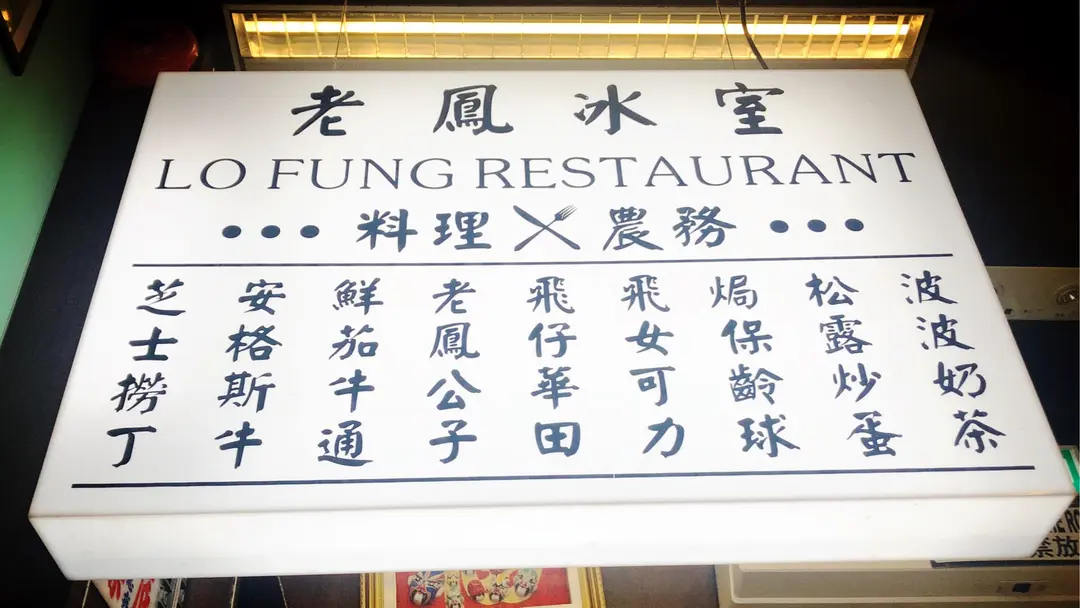 老鳳冰室
LO FUNG RESTAURANT
料理 農務
波波奶茶
松露炒蛋
焗保齡球
飛女可力
飛仔華田
老鳳公子
鮮茄牛通
安格斯牛
芝士撈丁
禁放